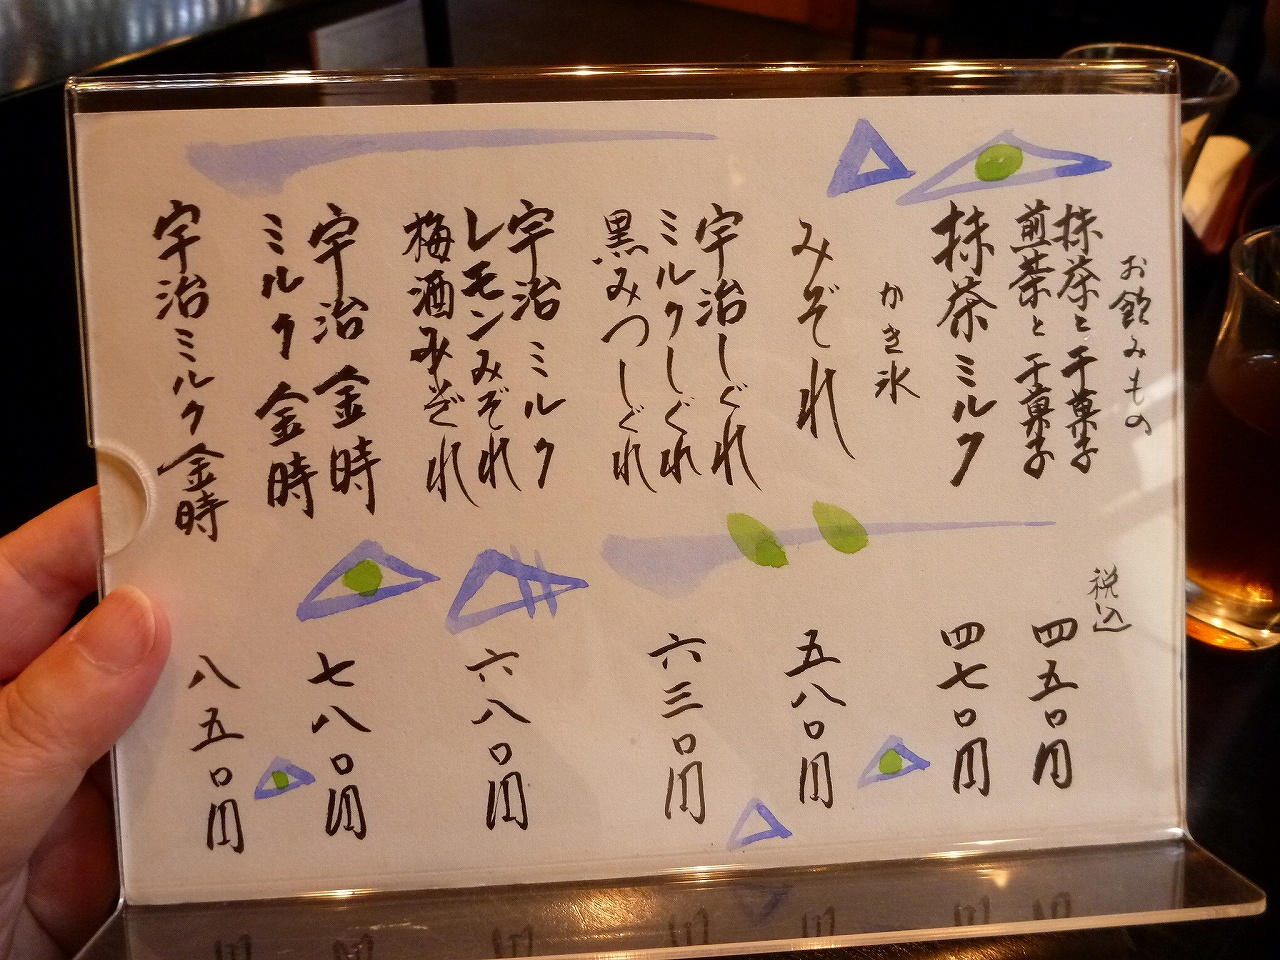 お飲みもの
税込
抹茶と干菓子
煎茶と干菓子
四五〇円
抹茶ミルク
四七〇円
かき氷
みぞれ
五八〇円
宇治しぐれ
ミルクしぐれ
黒みつしぐれ
六三〇円
宇治ミルク
レモンみぞれ
梅酒みぞれ
六八〇円
宇治金時
ミルク金時
七八〇円
宇治ミルク金時
八五〇円